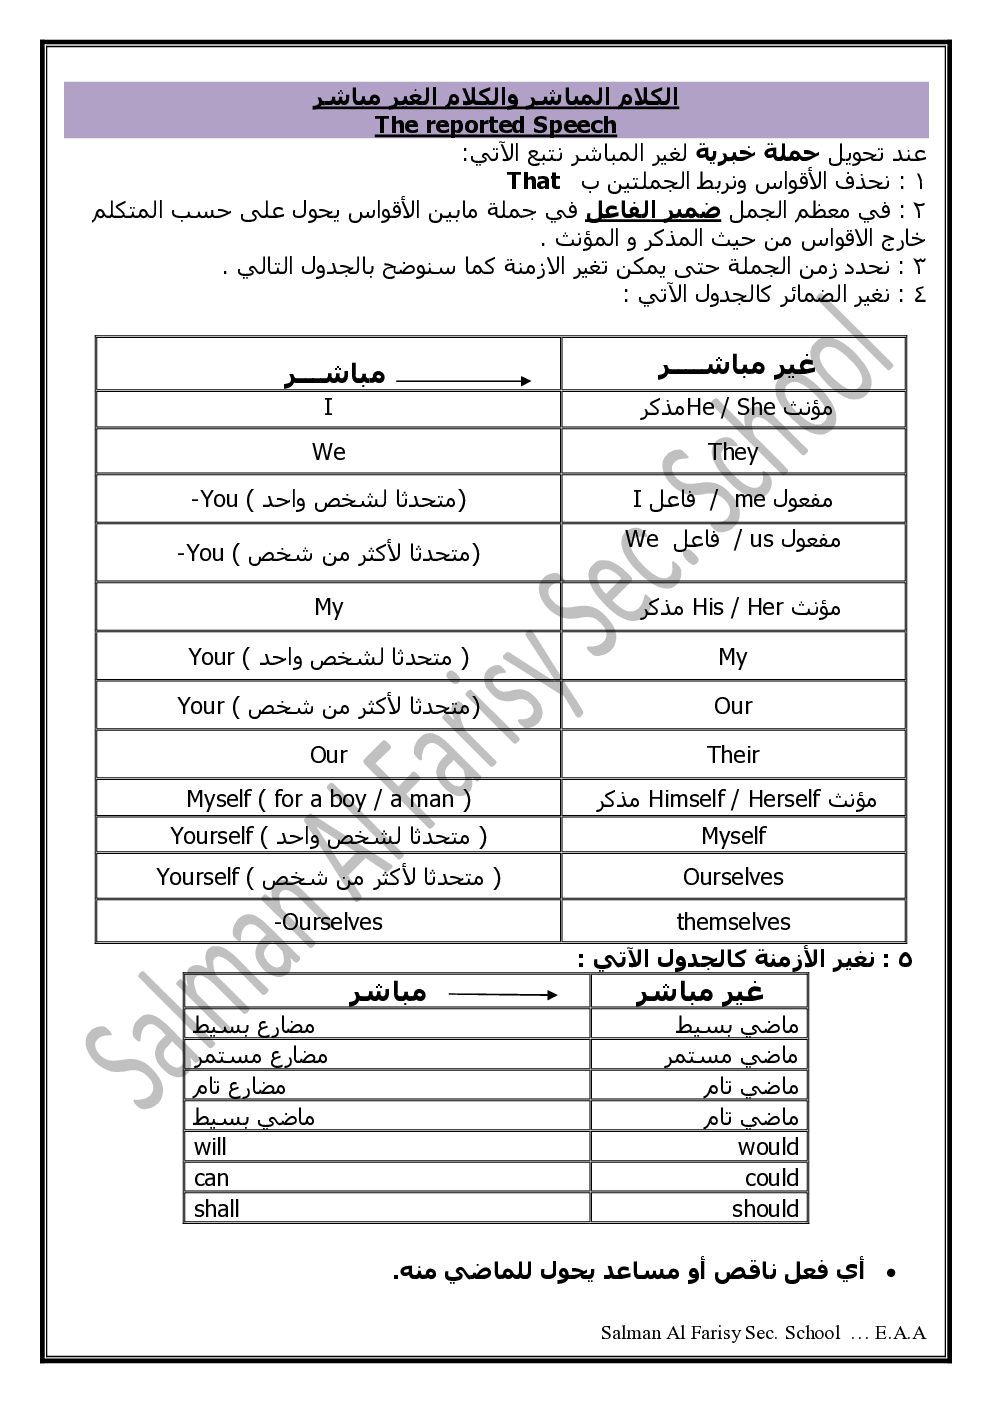 الكلام المباشر والكلام الغير مباشر
The reported Speech
عند تحويل جملة خبرية لغير المباشر نتبع الآتي:
١ : نحذف الأقواس ونربط الجملتين ب That
٢ : في معظم الجمل ضمير الفاعل في جملة مابين الأقواس يحول على حسب المتكلم
خارج الاقواس من حيث المذكر و المؤنث .
٣ : نحدد زمن الجملة حتى يمكن تغير الازمنة كما سنوضح بالجدول التالي .
٤ : نغير الضمائر كالجدول الآتي :
مباشـــر غير مباشــــر
I مذكرHe / She مؤنث
We They
-You ( متحدثا لشخص واحد) I فاعل / me مفعول
-You ( متحدثا لأكثر من شخص) We فاعل / us مفعول
My مذكر His / Her مؤنث
Your ( متحدثا لشخص واحد ) My
Your ( متحدثا لأكثر من شخص) Our
Our Their
Myself ( for a boy / a man ) مذكر Himself / Herself مؤنث
Yourself ( متحدثا لشخص واحد ) Myself
Yourself ( متحدثا لأكثر من شخص ) Ourselves
-Ourselves themselves
٥ : نغير الأزمنة كالجدول الآتي :
مباشر غير مباشر
مضارع بسيط ماضي بسيط
مضارع مستمر ماضي مستمر
مضارع تام ماضي تام
ماضي بسيط ماضي تام
will would
can could
shall should
• أي فعل ناقص أو مساعد يحول للماضي منه.
Salman Al Farisy Sec. School … E.A.A
Salman Al Farisy Sec. School